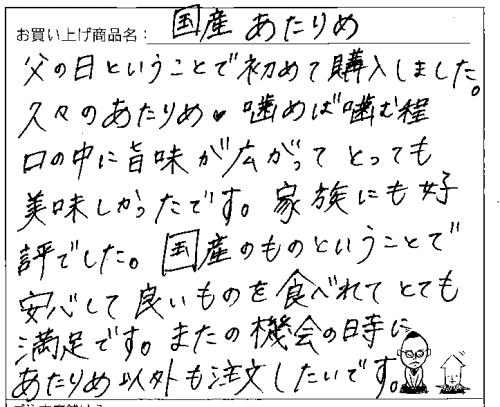 お買い上げ商品名： 国産 あたりめ
父の日ということで初めて購入しました。
久々のあたりめ♥噛めば噛む程
口の中に旨味が広がってとっても
美味しかったです。家族にも好
評でした。国産のものということで
安心して良いものを食べれてとても
満足です。またの機会の時に
あたりめ以外も注文したいです。